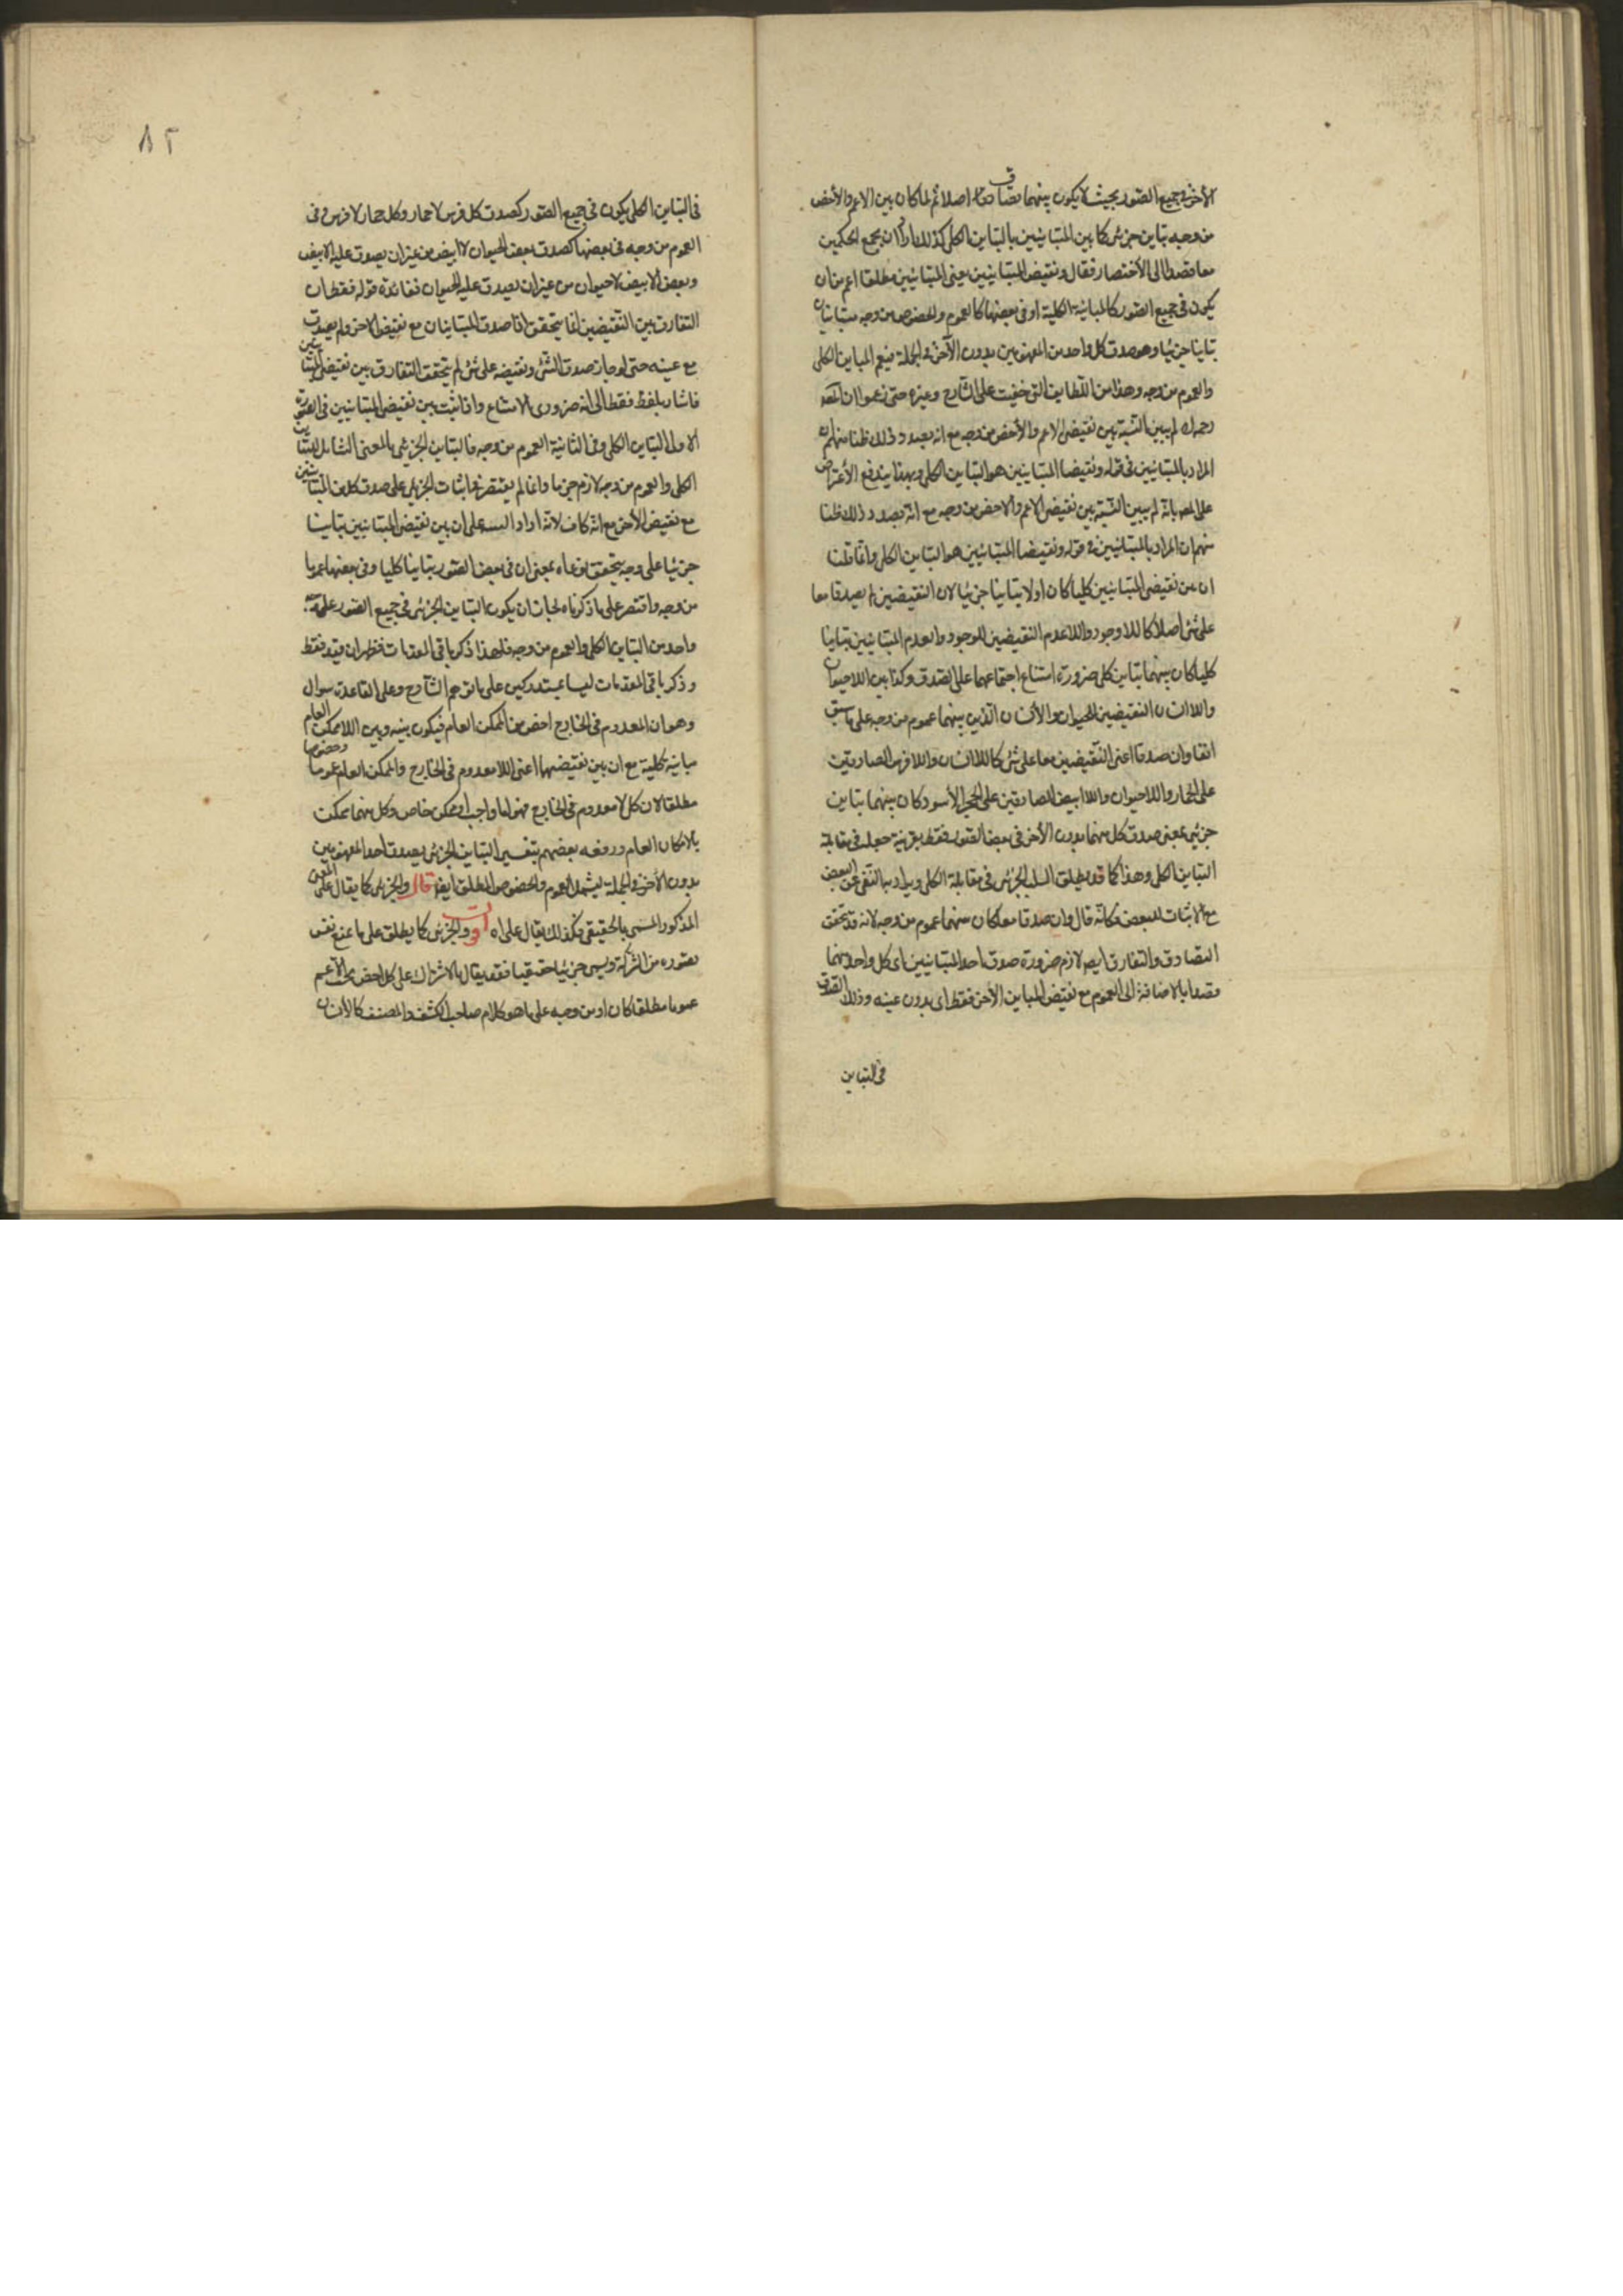 الآخر في جميع الصور بحيث لا يكون بينهما تصادق اصلا ثم لما كان بين الاعم والأخص
من وجه تباين جزئي كما بين المتباينين بالتباين الكلي كذلك اراد ان يجمع الحكمين
معا قصدا الى الأختصار فقال ونقيض المتباينين يعني المتباينين مطلقا اعم من ان
يكون في جميع الصور كالمباينة الكلية او في بعضها كالعموم والخصوص من وجه متباينان
تباينا جزئيا وهو صدق كل واحد من المفهومين بدون الآخر في الجملة فيعم المباين الكلي
والعموم من وجه وهذا من اللطايف التي خفيت على الشارح وغيره حتى زعموا ان المص
رحمه الله لم يبين النسبة بين نقيضي الاعم والأخص من وجه مع انه بصدد ذلك ظنا منهم ان
المراد بالمتباينين في قوله ونقيضا المتباينين هو التباين الكلي وبهذا يندفع الأعتراض
على المص بانه لم يبين النسبة بين نقيضي الاعم والاخص من وجه مع انه بصدد ذلك ظنا
منهم ان المراد بالمتباينين في قوله ونقيضا المتباينين هو التباين الكلي وانما قلنا
ان بين نقيضي المتباينين كليا كان اولا تباينا جزئيا لان النقيضين ان لم يصدقا معا
على شئ اصلا كاللاوجود واللاعدم النقيضين للوجود والعدم المتباينين تباينا
كليا كان بينهما تباين كلي ضرورة امتناع اجتماعهما على الصدق وكذا بين اللاحيوان
واللاانسان النقيضين للحيوان والأنسان الذين بينهما عموم من وجه على ما سبق
انفا وان صدقا اعني النقيضين معا على شئ كاللاانسان واللافرس الصادقين
على الحمار واللاحيوان واللاابيض الصادقين على الحجر الأسود كان بينهما تباين
جزئي بمعنى صدق كل منهما بدون الأخر في بعض الصور فقط بقرينة جعله في مقابلة
التباين الكلي وهذا كما قد يطلق السلب الجزئي في مقابلة الكلي ويراد به النفي عن البعض
مع الاثبات للبعض فكانه قال وان صدقا معا كان بينهما عموم من وجه لانه قد يتحقق
التصادق والتفارق ايضا لازم ضرورة صدق احد المتباينين اى كل واحد منهما
قصدا بالاضافة الى العموم مع نقيض المباين الآخر فقط اى بدون عينه وذلك الصدق
في التباين
٨٢
في التباين الكلي يكون في جميع الصور كصدق كل فرس لاحمار وكل حمار لافرس وفى
العموم من وجه في بعضها كصدق بعض الحيوان لا ابيض من غير ان يصدق عليه الابيض
وبعض الابيض لاحيوان من غير ان يصدق عليه الحيوان ففائدة قوله فقط ان
التفارق بين النقيضين انما يتحقق اذا صدق المتباينان مع نقيض الاخر ولم يصدق
مع عينه حتى لو جاز صدق الشئ ونقيضه على شئ لم يتحقق التفارق بين نقيضي المتباينين
فاشار بلفظ فقط الى انه ضروري الامتناع واذا ثبت بين نقيضي المتباينين في الصورة
الاولى التباين الكلي وفي الثانية العموم من وجه فالتباين الجزئي بالمعنى الشامل للتباين
الكلي والعموم من وجه لازم جزما وانما لم يقتصر في اثبات الجزئي على صدق كل من المتباينين
مع نقيض الأخر مع انه كاف لانه اراد التنبيه على ان بين نقيضي المتباينين تباينا
جزئيا على وجه يتحقق نوعاه بمعنى ان في بعض الصور تباينا كليا وفي بعضها عموما
من وجه ولو اقتصر على ما ذكرناه لجاز ان يكون التباين الجزئي في جميع الصور على
واحد من التباين الكلي والعموم من وجه فلهذا ذكر باقي المقدمات فظهر ان قيد فقط
وذكر باقي المقدمات ليسا بمستدركين على ما توهم الشارح وعلى القاعدة سوال
وهو ان المعدوم في الخارج اخص من الممكن العام فيكون بينه وبين اللاممكن العام
مباينة كلية مع ان بين نقيضهما اعني اللامعدوم في الخارج والممكن العام عموما وخصوصا
مطلقا لان كل لامعدوم في الخارج فهو اما واجب او ممكن خاص وكل منهما ممكن
بالامكان العام ودفعه بعضهم بتفسير التباين الجزئي بصدق احد المفهومين
بدون الآخر في الجملة ليشمل العموم والخصوص المطلق ايضا قال والجزئي كما يقال على المعنى
المذكور المسمى بالحقيقي فكذلك يقال على اه اقول والجزئي كما يطلق على ما يمنع نفس
تصوره من الشركة ويسمى جزئيا حقيقيا فقد يقال بالاشتراك على كل اخص تحت الأعم
عموما مطلقا كان او من وجه على ما هو كلام صاحب الكشف والمصنف كالأنسان